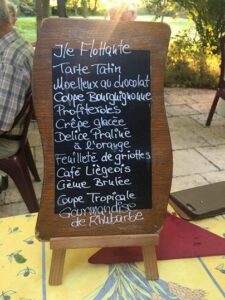 Ile Flottante
Tarte Tatin
Moelleux au chocolat
Coupe Bourguignonne
Profiteroles
Crêpe glacée
Délice Praliné
à l'orange
Feuilleté de griottes
Café Liégeois
Crème Brulée
Coupe Tropicale
Gourmandise
de Rhubarbe